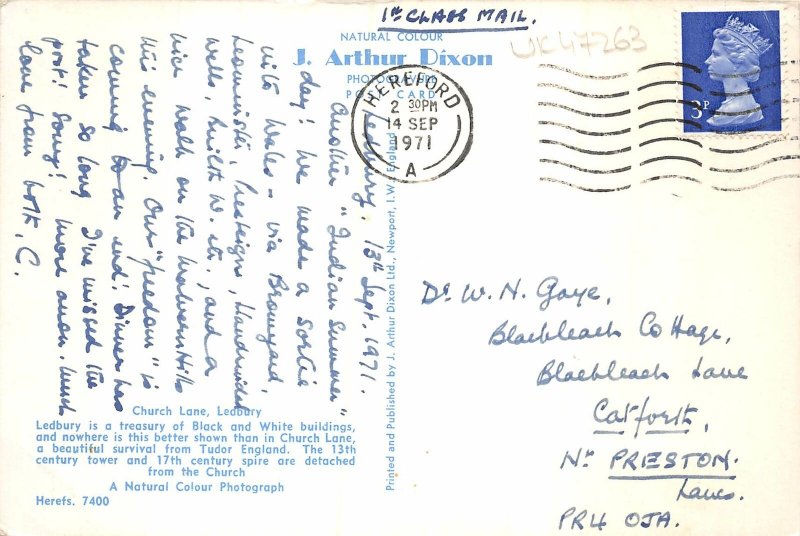 1st CLASS MAIL.
UK47263
NATURAL COLOUR
J. Arthur Dixon
PHOTOGRAVURE
POST CARD
HEREFORD
2 30PM
14 SEP
1971
A
3P
Ledbury. 13th Sept. 1971.
Another "Indian Summer"
day! We made a sortie
into Wales - via Bromyard,
Leominster, Presteign, Llandrindod
Wells, Builth W. etc., and a
nice walk on the Malvern Hills
this evening. Our "freedom" is
coming to an end! Dinner has
taken so long I've missed the
post! Sorry! More anon. Much
love from both, C.
Printed and Published by J. Arthur Dixon Ltd., Newport, I.W., England
Dr W. N. Gaye,
Blackleach Cottage,
Blackleach Lane
Catforth,
Nr PRESTON.
Lancs.
PR4 0JA.
Church Lane, Ledbury
Ledbury is a treasury of Black and White buildings,
and nowhere is this better shown than in Church Lane,
a beautiful survival from Tudor England. The 13th
century tower and 17th century spire are detached
from the Church
A Natural Colour Photograph
Herefs. 7400